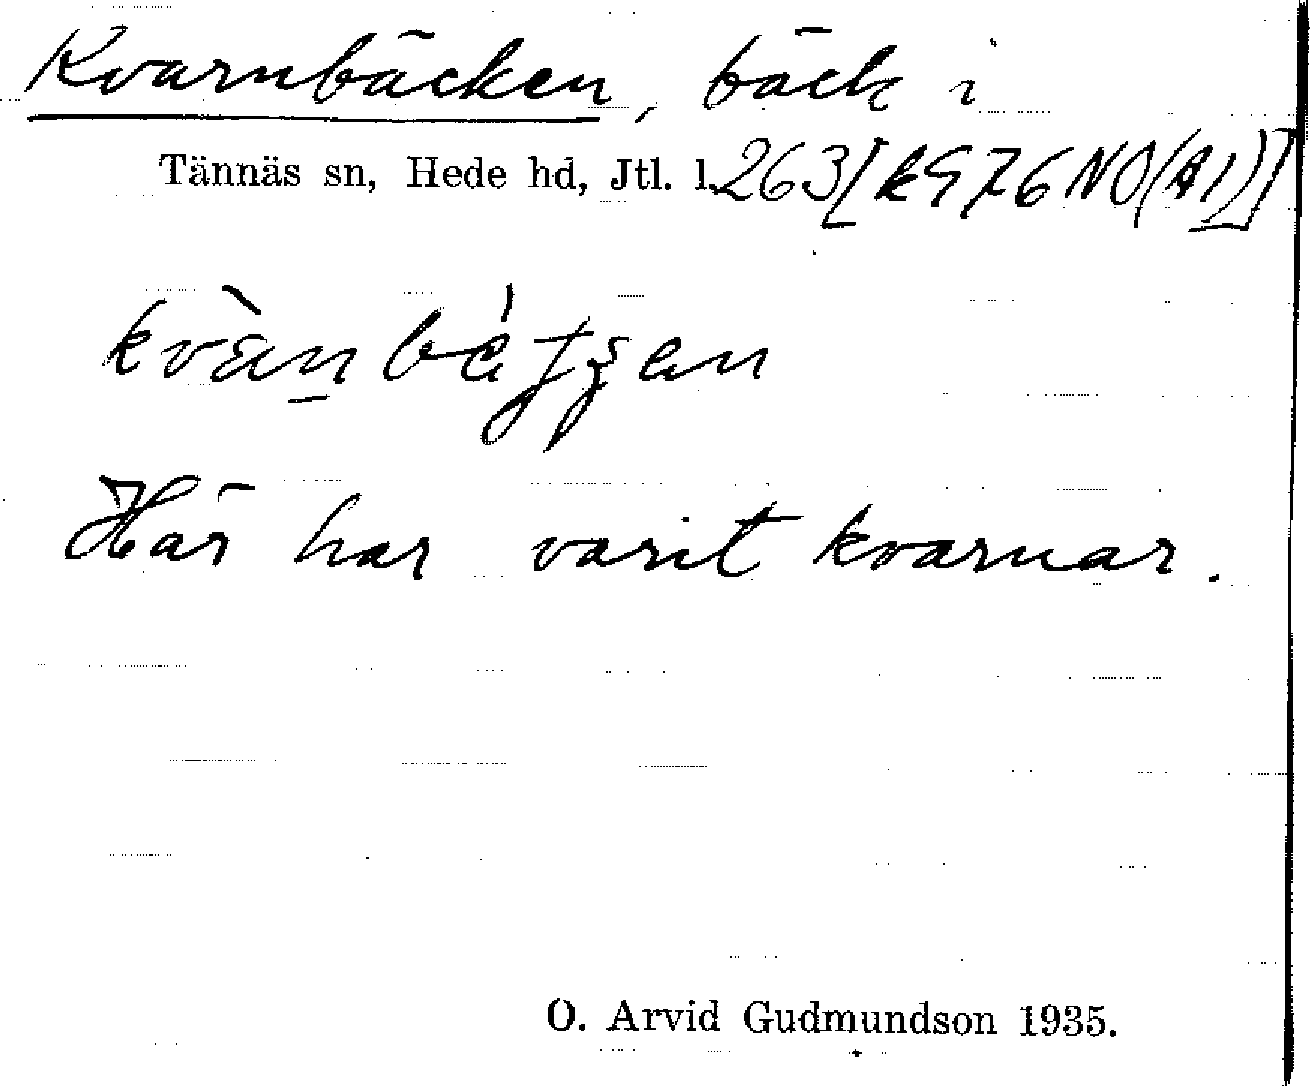 Kvarnbäcken, bäck i
Tännäs sn, Hede hd, Jtl. l. 263 [k976NO(A1)]
Här har varit kvarnar.
O. Arvid Gudmundson 1935.